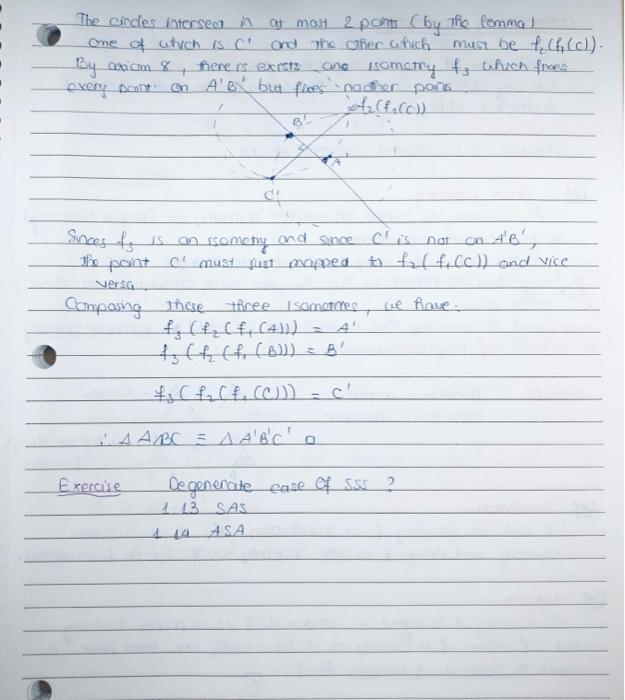 The circles intersect in at most 2 points (by the lemma)
one of which is C' and the other which must be f₂(f₁(C)).
By axiom 8, there is exists one isometry f₃ which fixes
every point on A'B' but fixes no other poins
f₂(f₁(C))
B'
A'
C'
Sinces f₃ is an isometry and since C' is not on A'B',
the point C' must just mapped to f₂(f₁(C)) and vice
versa.
Composing these three isometries, we have:
f₃(f₂(f₁(A))) = A'
f₃(f₂(f₁(B))) = B'
f₃(f₂(f₁(C))) = C'
∴ Δ ABC ≡ Δ A'B'C' □
Exercise Degenerate case of SSS ?
1.13 SAS
1.14 ASA